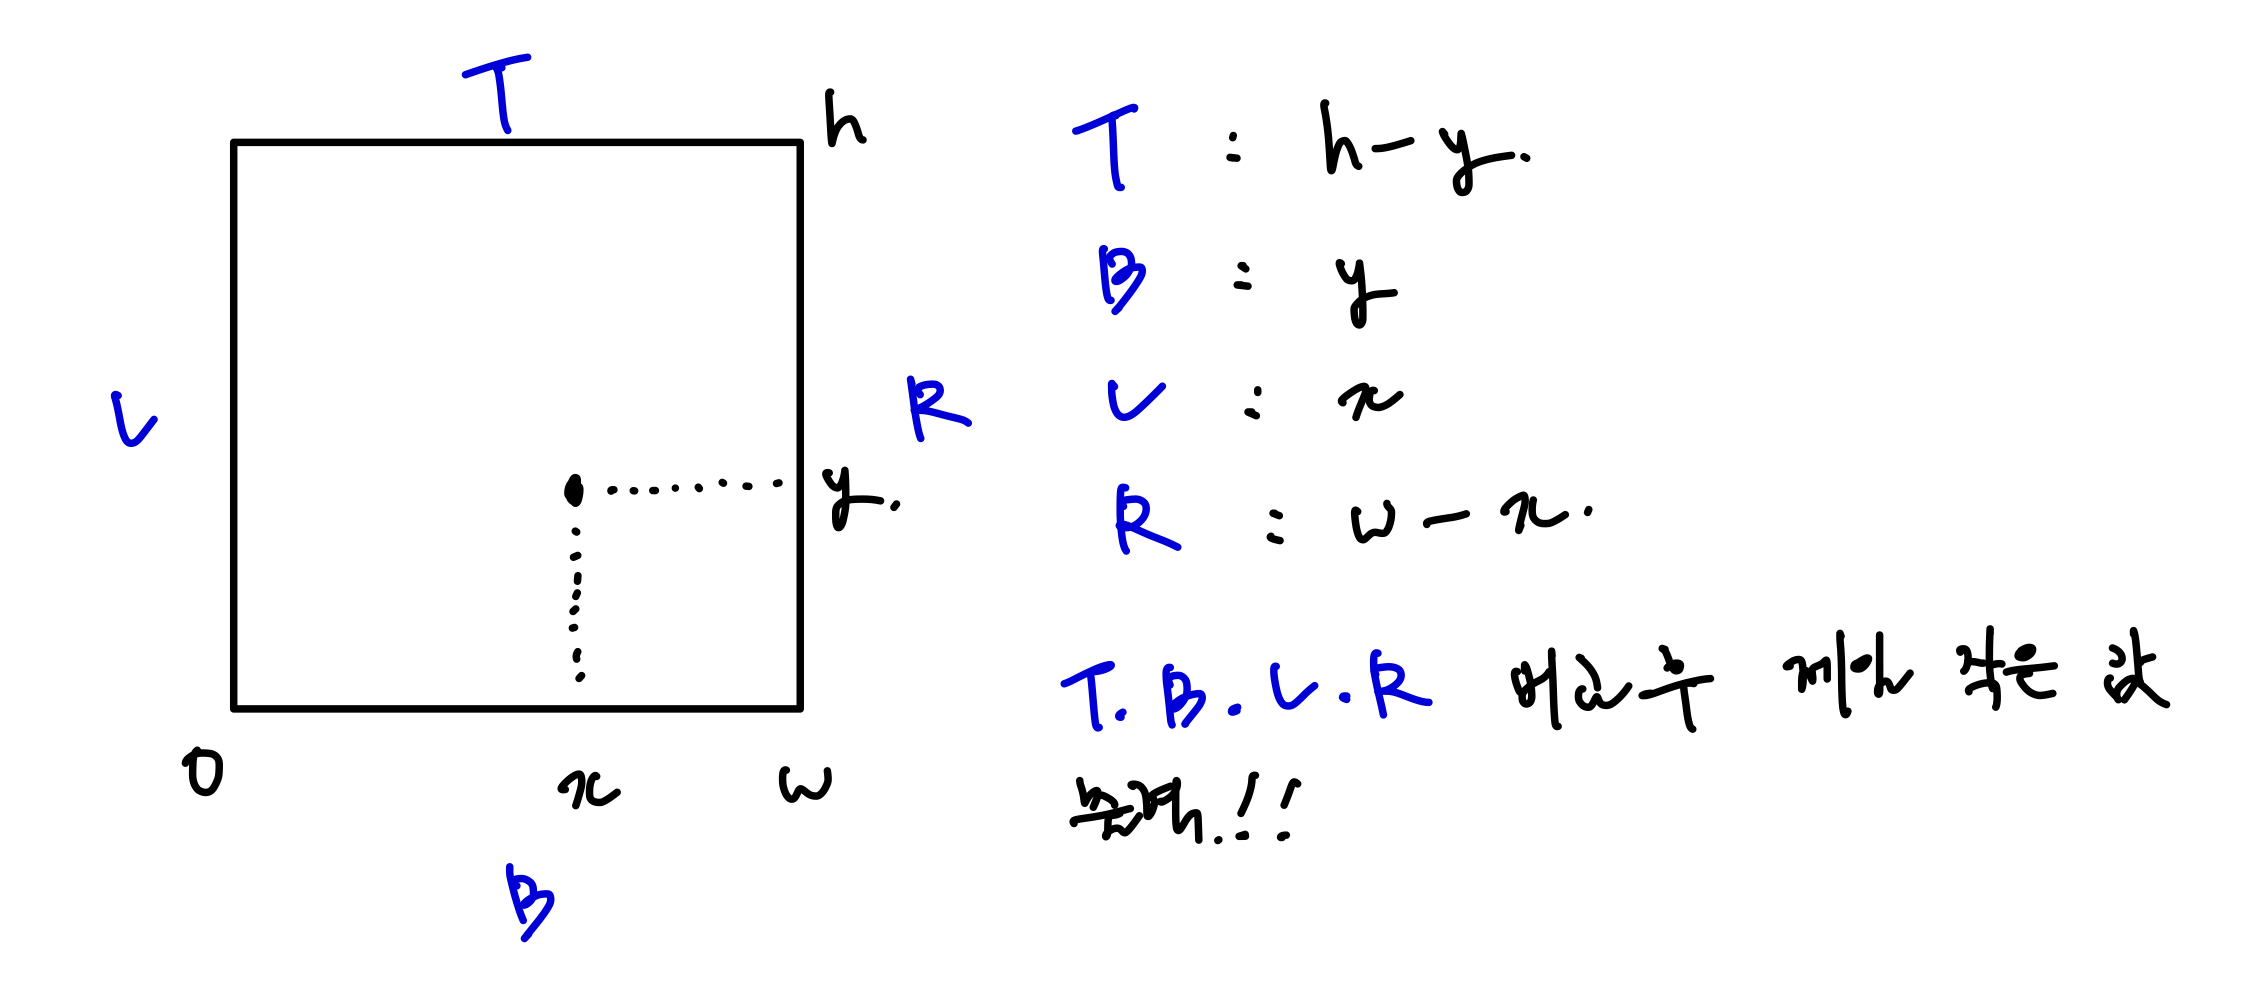 T
h
L
R
y.
0
x
w
B
T : h - y.
B : y
L : x
R : w - x.
T. B. L. R 비교후 제일 작은 값
출력.!!